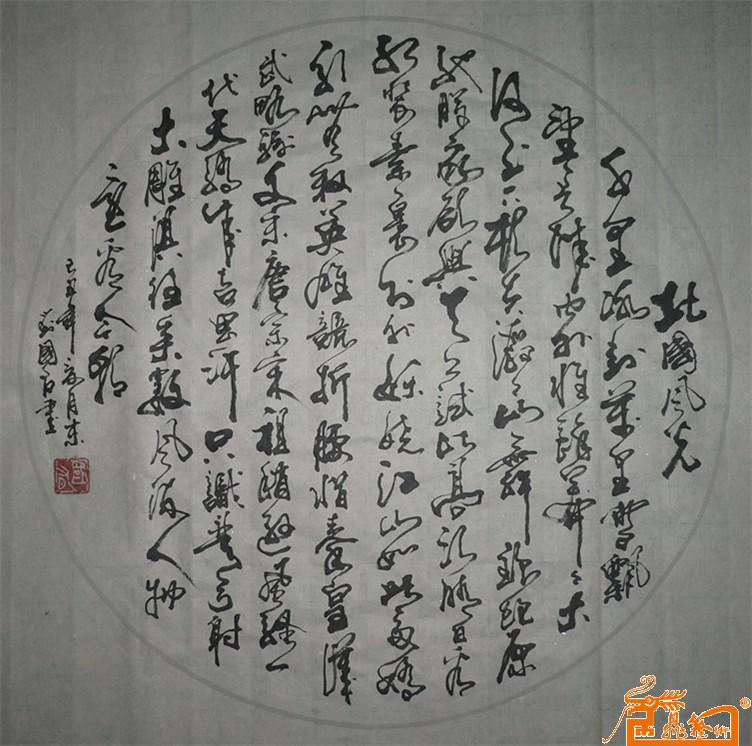 北國風光
千里冰封萬里雪飄
望長城内外惟餘莽々大
河上下頓失滔々山舞銀蛇原
馳臘象欲與天公試比高須晴日看
紅裝素裹分外妖嬈江山如此多嬌
引無數英雄競折腰惜秦皇漢
武略輸文采唐宗宋祖稍遜風騷一
代天驕成吉思汗只識彎弓射
大雕俱往矣數風流人物
還看今朝
己丑年月末
國書